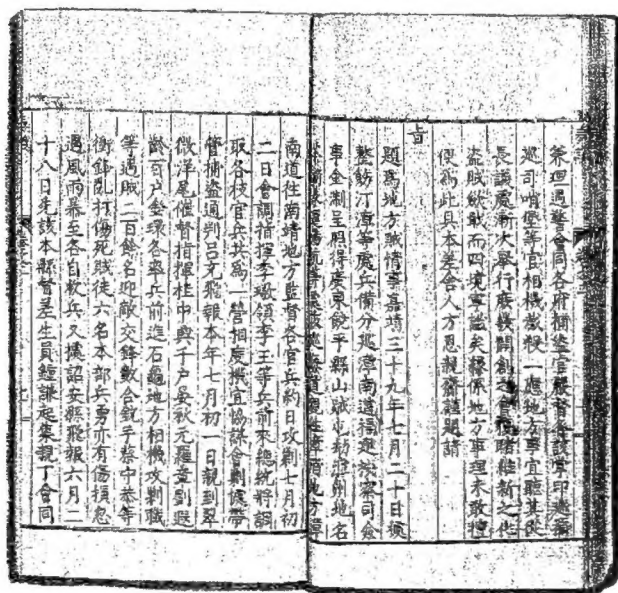 爺迴遇警會同各府捕盜官嚴督各該掌印巡捕
巡司哨堡等官相機截殺一應地方事宜聽其從
長議處漸次舉行庶幾開創之會獲睹維新之化
盜賊歛戢而四境寧謐矣緣係地方事理未敢擅
便爲此具本差舍人方恩親齎謹題請
旨
題爲地方賊情事嘉靖三十九年七月二十日據
整飭汀漳等處兵備分巡漳南道福建按察司僉
事金制呈照得廣東饒平縣山賊屯劫莊 地名
南道往南靖地方監督各官兵約日攻剿七月初
二日會調指揮李 領李王等兵前來總統將調
取各枝官兵共爲一營相度機宜協謀會剿復帶
管捕盜通判呂元飛報本年七月初一日親到翠
微洋尾催督指揮桂中興千戶晏秋元羅章劉遐
齡百戶金環各率兵前進石龜地方相機攻剿職
等遇賊二百餘名迎敵交鋒數合銃手蔡中恭等
衝鋒亂打傷死賊徒六名本部兵勇亦有傷損忽
遇風雨暴至各自收兵又據詔安縣飛報六月二
十八日先該本縣督差生員鍾謙起集親丁會同